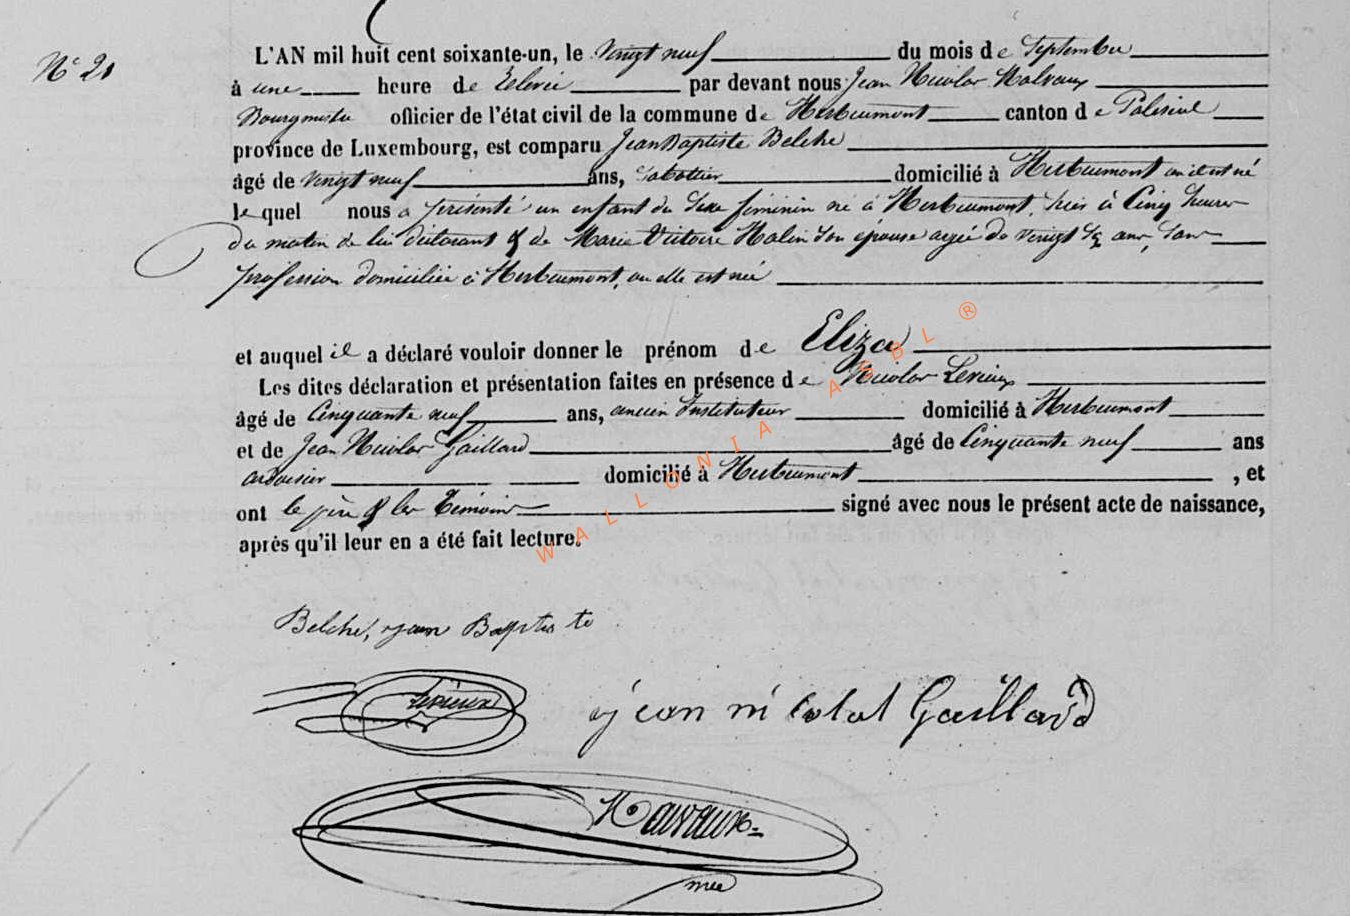 N° 21
L'AN mil huit cent soixante-un, le vingt neuf du mois de Septembre
à une heure de Rélevée par devant nous Jean Nicolas Malvaux
Bourgmestre officier de l'état civil de la commune de Herbeumont canton de Paliseul
province de Luxembourg, est comparu Jean Baptiste Belche
âgé de vingt neuf ans, Sabottier domicilié à Herbeumont où il est né
lequel nous a présenté un enfant du Sexe féminin né à Herbeumont, hier à Cinq heures
du matin de lui déclarant & de Marie Victoire Halin Son épouse agée de vingt Six ans, Sans
profession domiciliée à Herbeumont, ou elle est née
et auquel il a déclaré vouloir donner le prénom de Eliza
Les dites déclaration et présentation faites en présence de Nicolas
âgé de Cinquante neuf ans, ancien Instituteur domicilié à Herbeumont
et de Jean Nicolas Gaillard âgé de Cinquante neuf ans
ardoisier domicilié à Herbeumont , et
ont le père & les témoins signé avec nous le présent acte de naissance,
après qu'il leur en a été fait lecture.
WALLONIA ASBL ®
Belche, jean Baptis te
jean nicolat Gaillard